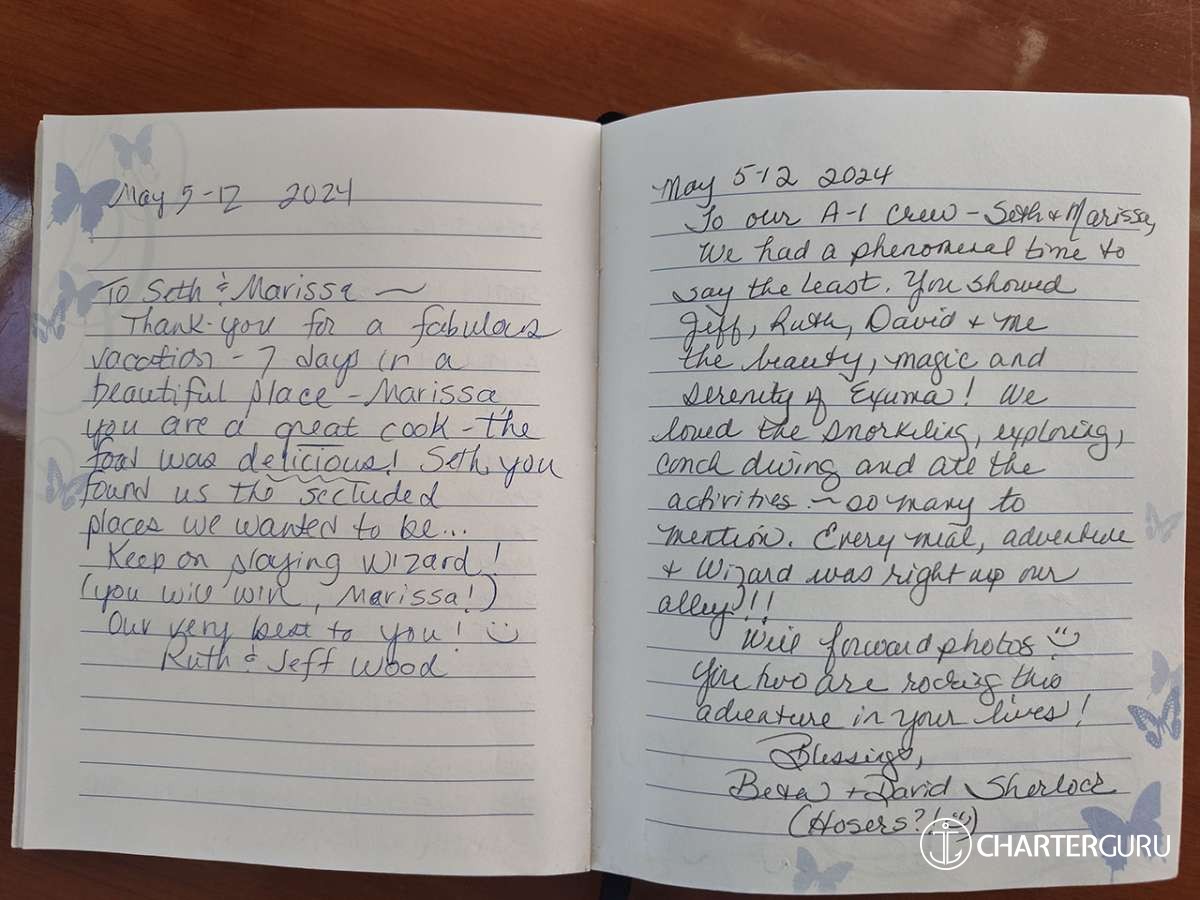 May 5-12 2024
To Seth & Marissa ~
Thank-you for a fabulous
vacation - 7 days in a
beautiful place - Marissa
you are a great cook - the
food was delicious! Seth, you
found us the secluded
places we wanted to be...
Keep on playing Wizard!
(you will win, Marissa!)
Our very best to you! ☺
Ruth & Jeff Wood
May 5-12 2024
To our A-1 Crew - Seth & Marissa,
We had a phenomenal time to
say the least. You showed
Jeff, Ruth, David + me
the beauty, magic and
serenity of Exuma! We
loved the snorkeling, exploring,
conch diving and all the
activities ~ so many to
mention. Every meal, adventure
+ Wizard was right up our
alley!!!
Will forward photos ☺
You two are rocking this
adventure in your lives!
Blessings,
+ David Sherlock
(Hosers?! ☺)
CHARTERGURU